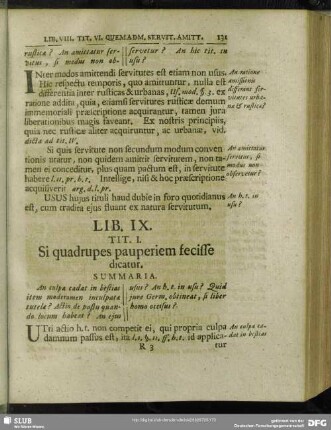 LIB. VIII. TIT. VI. QUEMADM. SERVIT. AMITT. 131
rusticæ? An amittatur ser- servetur? An hic tit. in
vitus, si modus non ob- usu?
INter modos amittendi servitutes est etiam non usus. An ratione
Hic respectu temporis, quo amittuntur, nulla est amissionis
differentia inter rusticas & urbanas, ex differant ser-
ratione addita, quia, etiamsi servitutes rusticæ domum vitutes urba-
immemoriali præscriptione acquirantur, tamen jura næ & rusticæ?
liberationibus magis faveant. Ex nostris principiis,
quia nec rusticæ aliter acquiruntur, ac urbanæ, vid.
dicta ad tit. IV.
Si quis servitute non secundum modum conven- An amittatur
tionis utatur, non quidem amittit servitutem, non ta- servitus, si
men ei conceditur, plus quam pactum est, in servitute modus non
habere l. 11. pr. h. t. Intellige, nisi & hoc præscriptione observetur?
acquisiverit arg. d. l. pr.
USUS hujus tituli haud dubie in foro quotidianus An h. t. in
est, cum tradita ejus fluant ex natura servitutum. usu?
LIB. IX.
TIT. I.
Si quadrupes pauperiem fecisse
dicatur.
SUMMARIA.
An culpa cadat in bestias usus? An h. t. in usu? Quid
item moderamen inculpatæ jure Germ. obtineat, si liber
tutelæ? Actio de pastu quan- homo occisus?
do locum habeat? An ejus
UTi actio h. t. non competit ei, qui propria culpa An culpa ca-
damnum passus est, ita h. t. id applica- dat in bestias
R 3 tur
SLUB
DFG